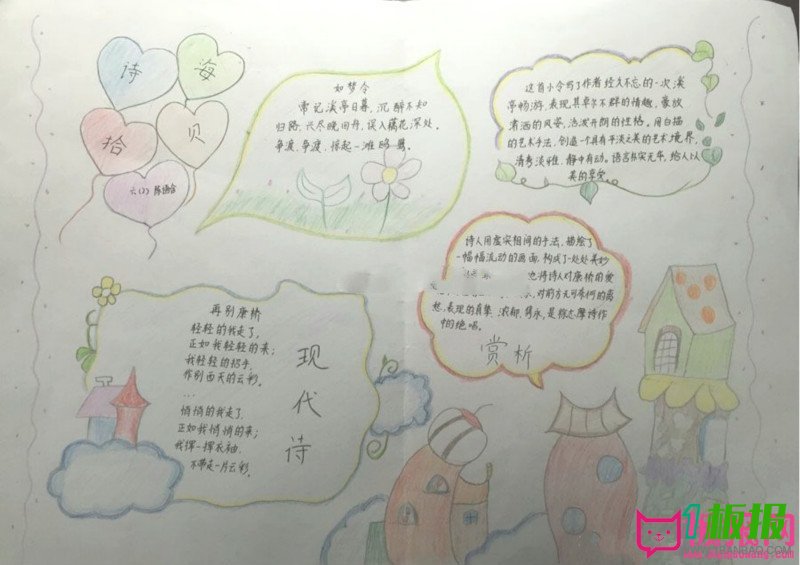 诗
海
拾
贝
六(2)
如梦令
常记溪亭日暮,沉醉不知
归路,兴尽晚回舟,误入藕花深处。
争渡,争渡,惊起一滩鸥鹭。
这首小令写了作者经久不忘的一次溪
亭畅游,表现其卓尔不群的情趣,豪放
潇洒的风姿,活泼开朗的性格。用白描
的艺术手法,创造一个具有平淡之美的艺术境界,
清秀淡雅,静中有动。语言朴实无华,给人以
美的享受。
再别康桥
轻轻的我走了,
正如我轻轻的来;
我轻轻的招手,
作别西天的云彩。
...
悄悄的我走了,
正如我悄悄的来;
我挥一挥衣袖,
不带走一片云彩。
现
代
诗
诗人用虚实相间的手法,描绘了
一幅幅流动的画面,构成了一处处美妙
也将诗人对康桥的爱
对前方无可奈何的离
愁,表现的真挚、浓郁、隽永,是徐志摩诗作
中的绝唱。
赏析
1板报
WWW.1BANBAO.COM